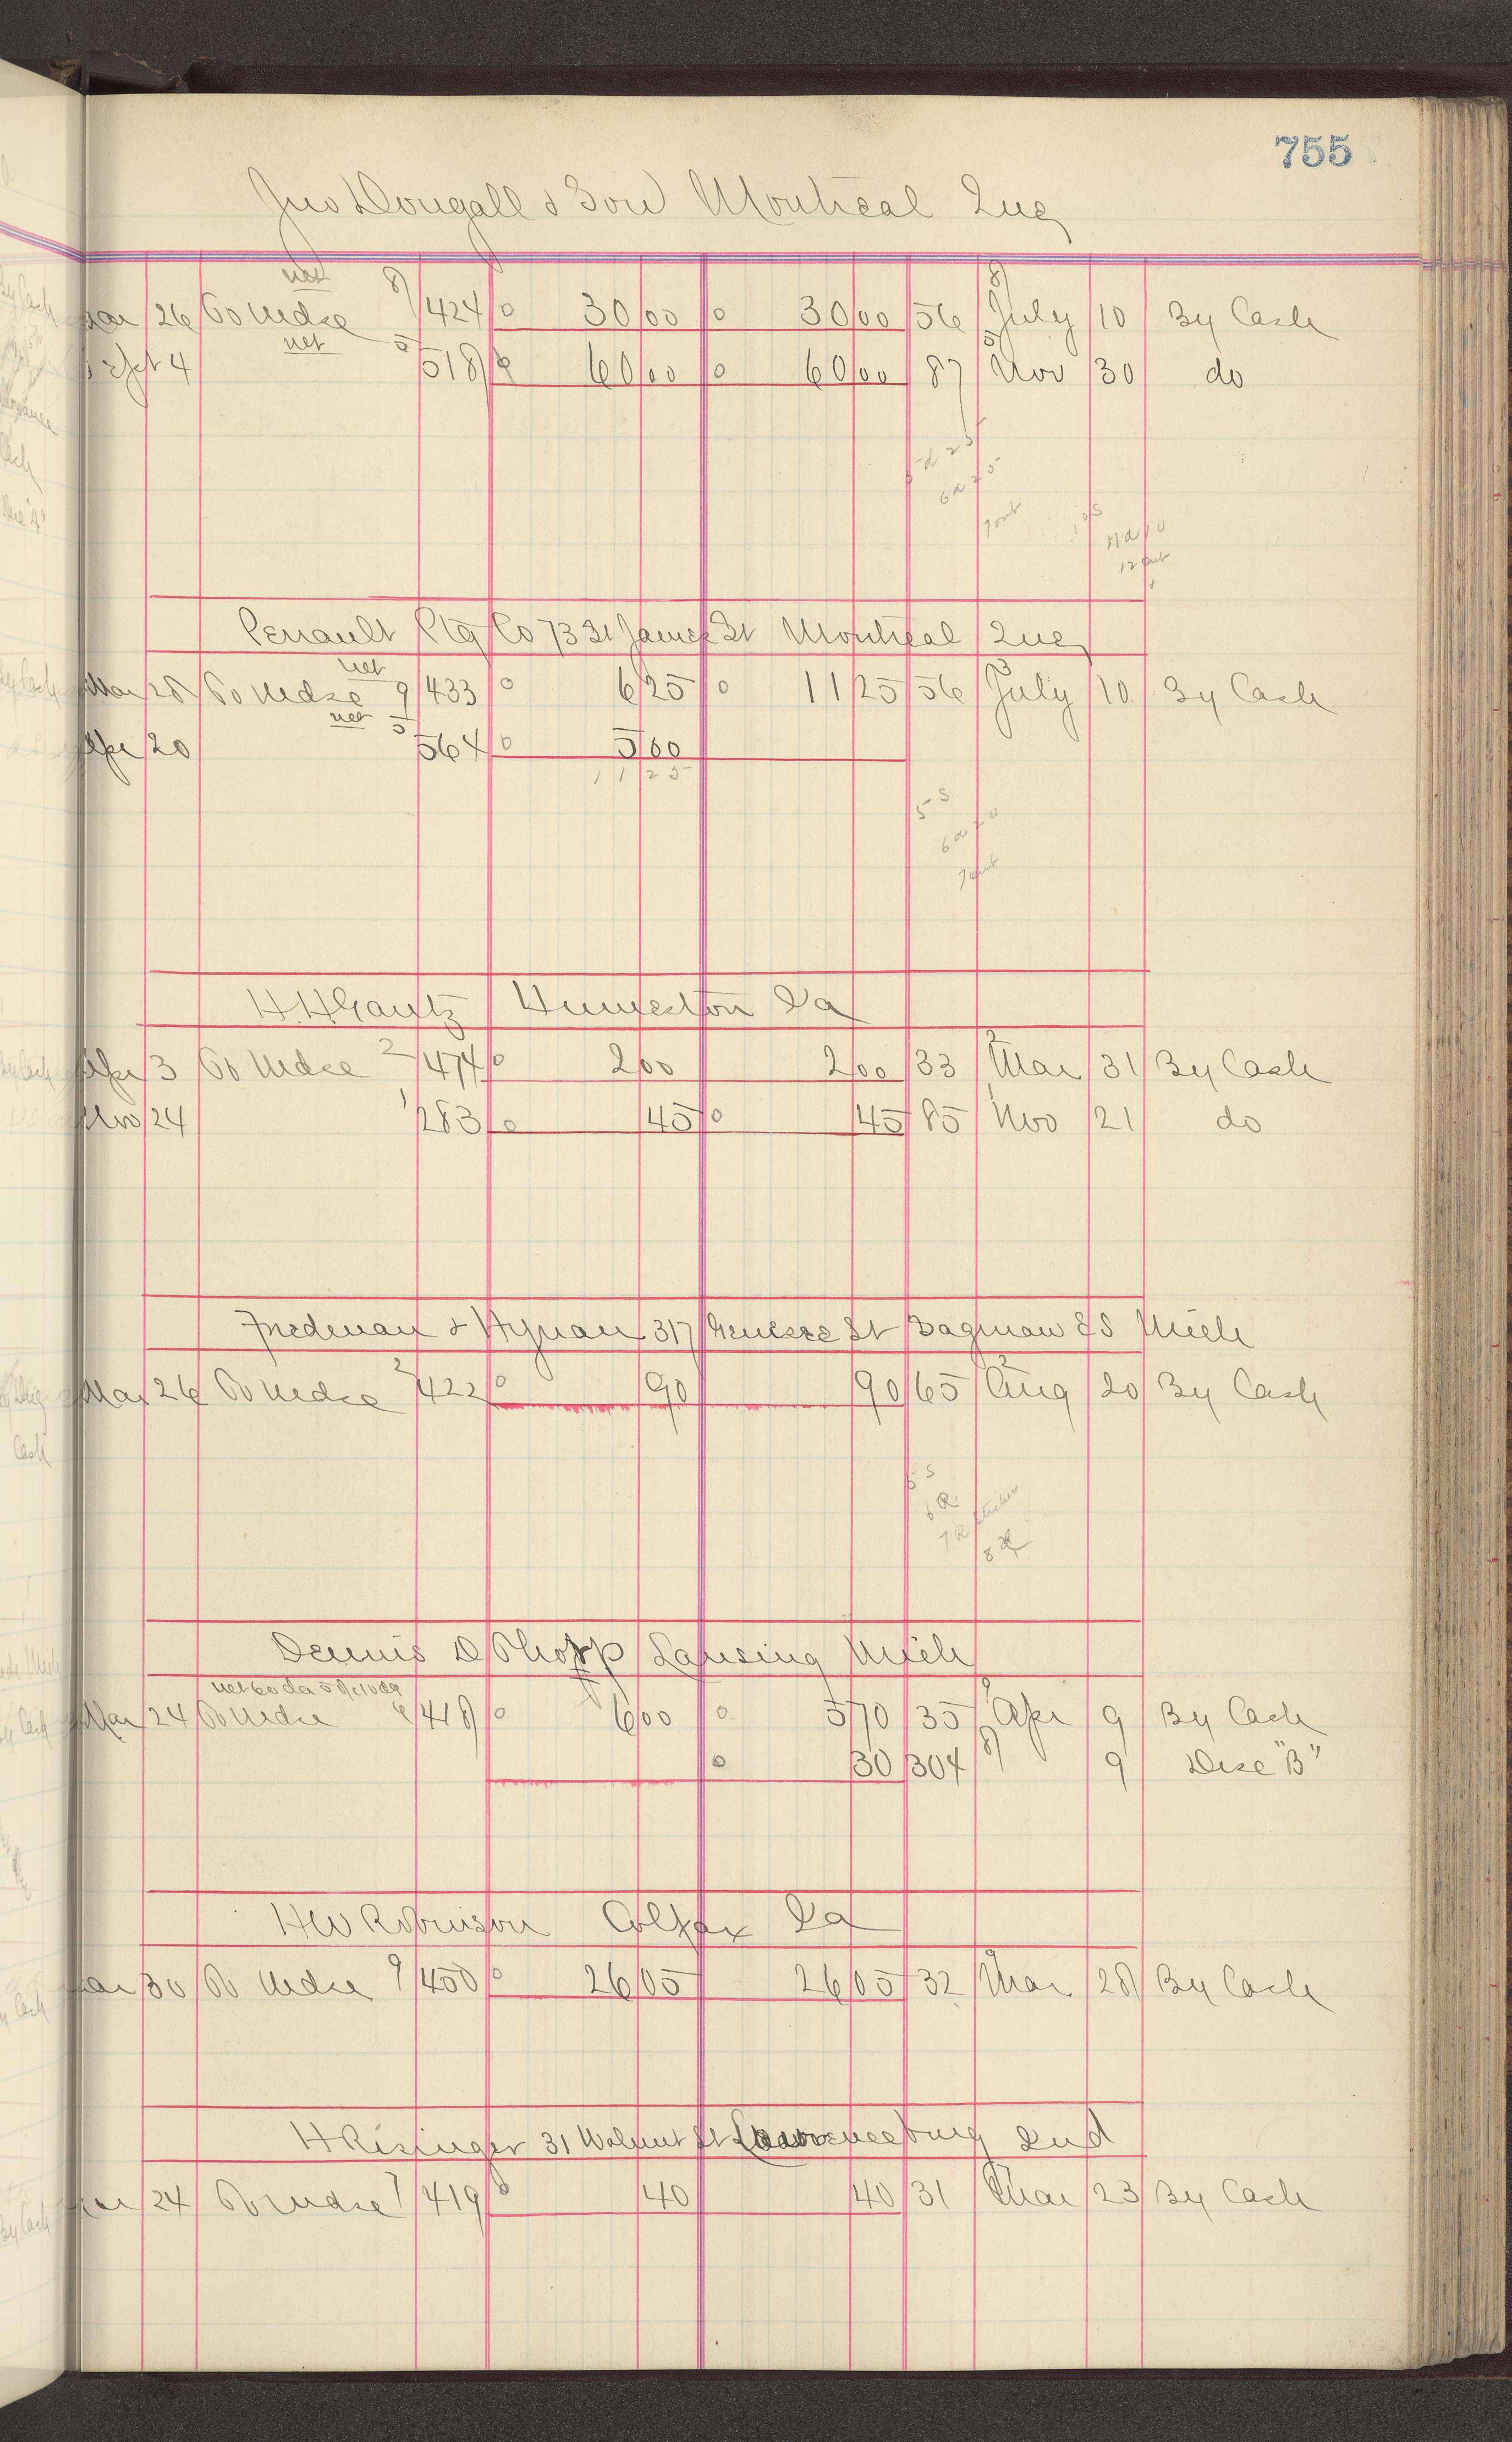 755
Jno Dougall & Son Montreal Que
net
Mar 26 To Mdse 8 424 0 30 00 0 30 00 56 8 July 10 By Cash
net
Sept 4 5 518 0 60 00 0 60 00 87 5 Nov 30 do
7 out
12 out
Perrault Ptg Co 73 St James St Montreal Que
net
Mar 28 To Mdse 9 433 0 6 25 0 11 25 56 3 July 10 By Cash
net
Apr 20 5 564 0 5 00
11 25
5 S
7 out
H.H. Gantz Humeston Ia
Apr 3 To Mdse 2 474 0 2 00 2 00 33 Mar 31 By Cash
Nov 24 1 283 0 45 0 45 85 1 Nov 21 do
Friedman & Hyman 317 Genesee St Saginaw E S Mich
Mar 26 To Mdse 2 422 0 90 90 65 2 Aug 20 By Cash
Dennis D Shopp Lansing Mich
net 60 da 5% 10 da
Mar 24 To Mdse 418 0 6 00 0 5 70 35 9 Apr 9 By Cash
0 30 304 8 9 Disc "B"
H W Robinson Colfax Ia
Mar 30 To Mdse 9 450 0 26 05 26 05 32 Mar 28 By Cash
H Risinger 31 Walnut St Lawrenceburg Ind
Mar 24 To Mdse 7 419 0 40 40 31 Mar 23 By Cash